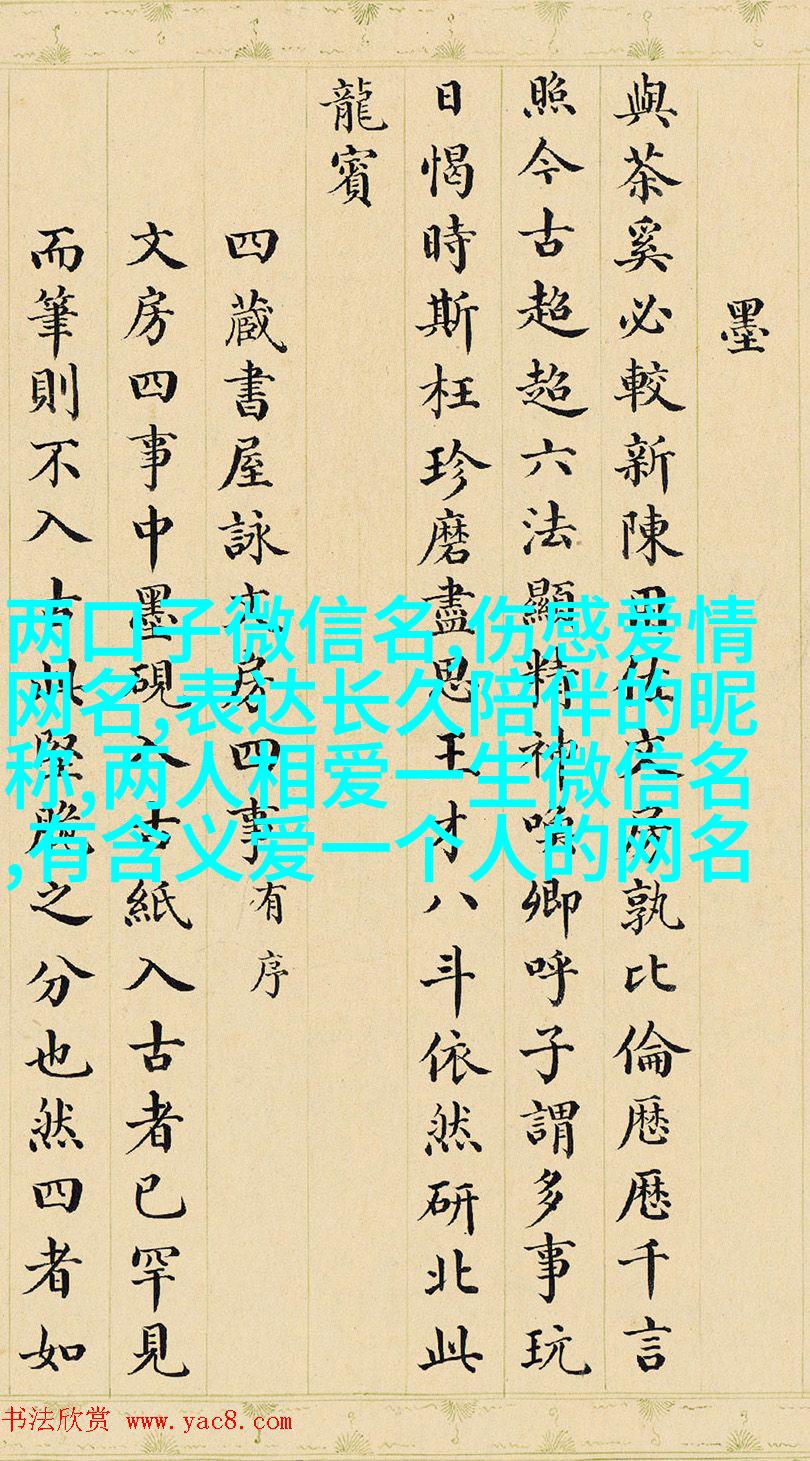 墨
與茶奚必較新陳用佐文房孰比倫厯厯千言
照今古超超六法顯精神喚卿呼子謂多事玩
日愒時斯枉珍磨盡思王才八斗依然研北此
龍賓
四蔵書屋詠文房四事有序
文房四事中墨硯入古紙入古者已罕見
而筆則不入古堅脆之分也然四者如
两口子微信名,伤感爱情
网名,表达长久陪伴的昵
称,两人相爱一生微信名
,有含义爱一个人的网名
书法欣赏 www.yac8.com